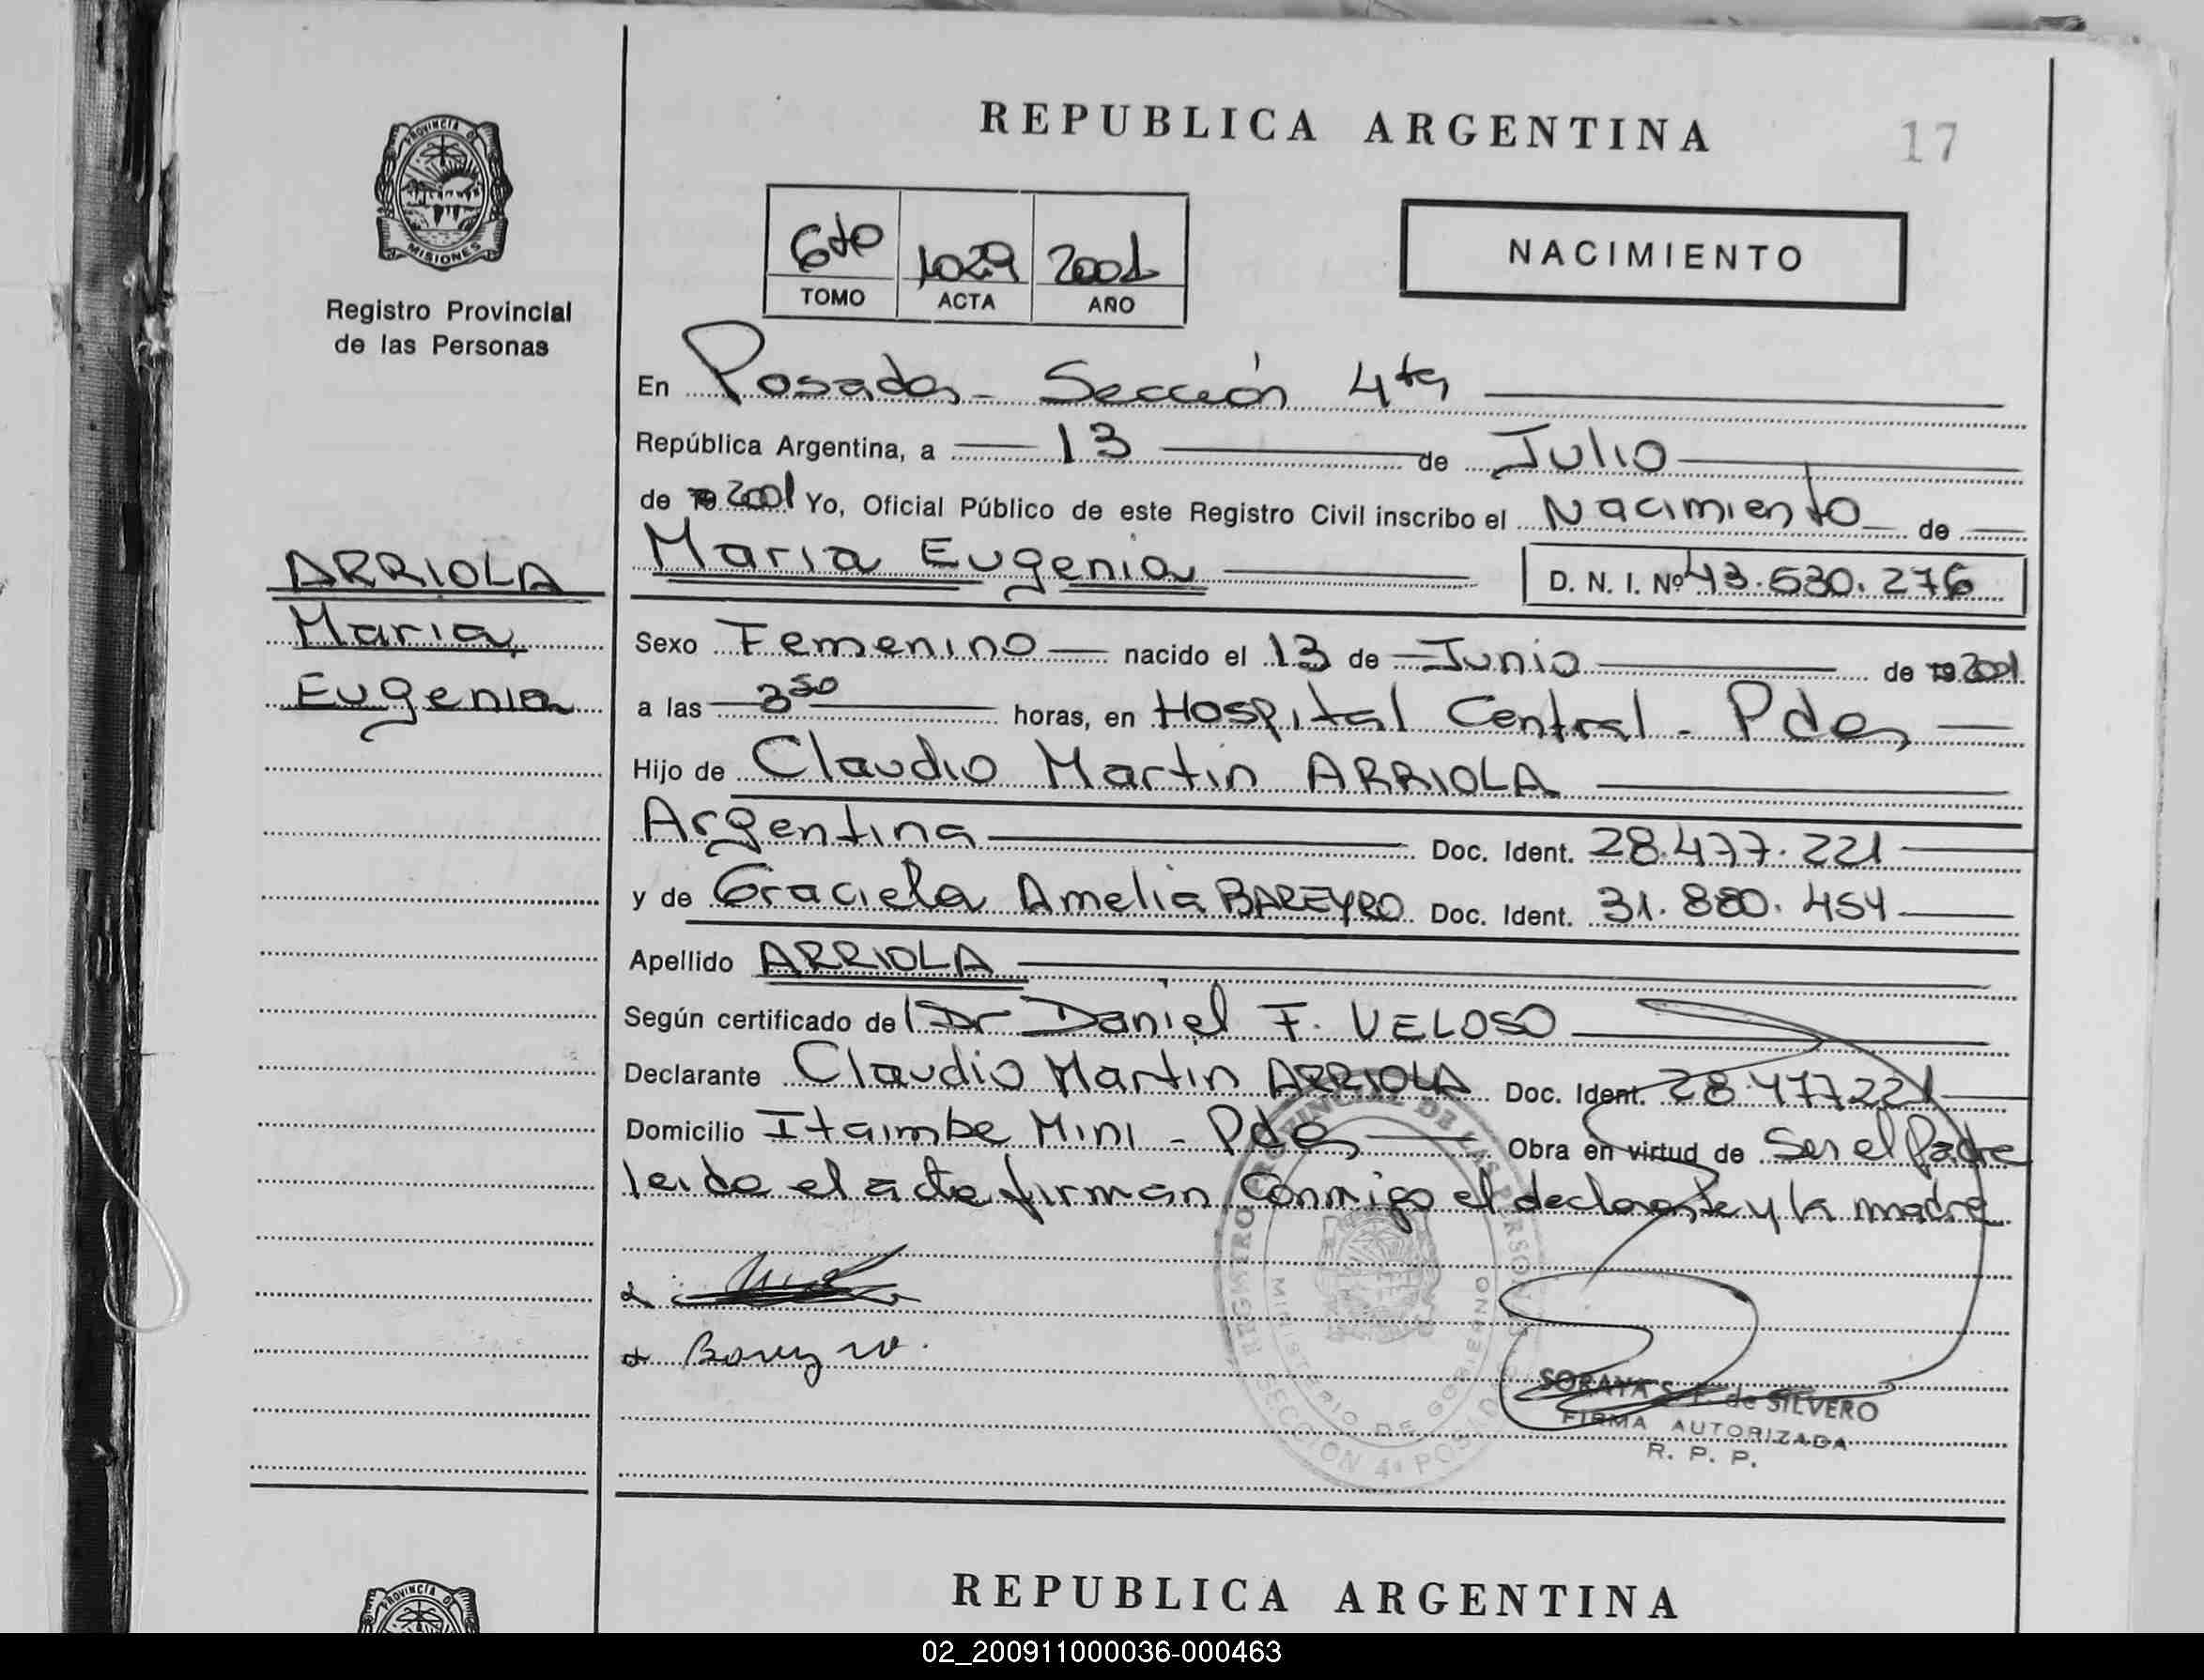 REPUBLICA ARGENTINA
17
PROVINCIA DE
MISIONES
Registro Provincial
de las Personas
6to 1029 2001
TOMO ACTA AÑO
NACIMIENTO
En Posadas - Sección 4ta
República Argentina, a 13 de Julio
de 19 2001 Yo, Oficial Público de este Registro Civil inscribo el Nacimiento de
Maria Eugenia
D. N. I. Nº 43.530.276
ARRIOLA
Maria
Eugenia
Sexo Femenino nacido el 13 de Junio de 19 2001
a las 3 50 horas, en Hospital Central - Pdas
Hijo de Claudio Martin ARRIOLA
Argentina Doc. Ident. 28.477.221
y de Graciela Amelia BAREYRO Doc. Ident. 31.880.454
Apellido ARRIOLA
Según certificado del Dr Daniel F. VELOSO
Declarante Claudio Martin ARRIOLA Doc. Ident. 28.477221
Domicilio Itaimbe Mini - Pdas Obra en virtud de Ser el Padre
leida el acta firman conmigo el declarante y la madre
Bareyro.
REGISTRO PROVINCIAL DE LAS PERSONAS
MINISTERIO DE GOBIERNO
SECCION 4ª POSADAS
SORAYA S. F. de SILVERO
FIRMA AUTORIZADA
R. P. P.
REPUBLICA ARGENTINA
PROVINCIA DE
02_200911000036-000463